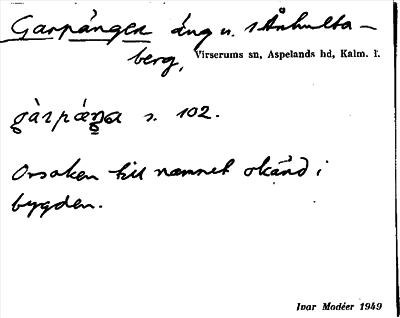 Garpängen äng u. Århulta-
berg,
Virserums sn, Aspelands hd, Kalm. l.
gàrpæŋa s. 102.
Orsaken till namnet okänd i
bygden.
Ivar Modéer 1949